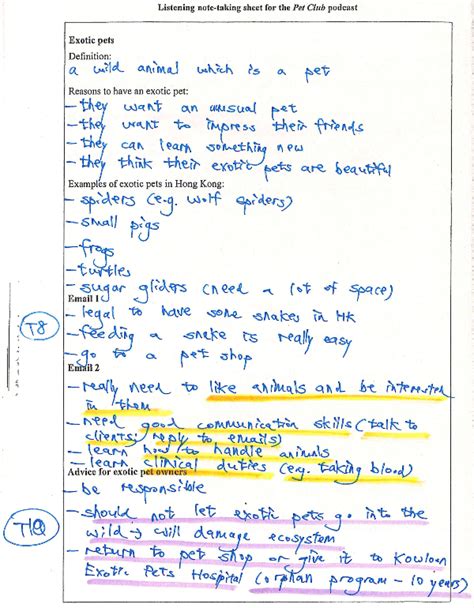 Listening note-taking sheet for the Pet Club podcast
Exotic pets
Definition:
a wild animal which is a pet
Reasons to have an exotic pet:
- they want an unusual pet
- they want to impress their friends
- they can learn something new
- they think their exotic pets are beautiful
Examples of exotic pets in Hong Kong:
- spiders (e.g. wolf spiders)
- small pigs
- frogs
- turtles
- sugar gliders (need a lot of space)
Email 1
- legal to have some snakes in HK
T8
- feeding a snake is really easy
- go to a pet shop
Email 2
- really need to like animals and be interested
in them
- need good communication skills (talk to
clients; reply to emails)
- learn how to handle animals
- learn clinical duties (e.g. taking blood)
Advice for exotic pet owners
- be responsible
- should not let exotic pets go into the
wild → will damage ecosystem
- return to pet shop or give it to Kowloon
Exotic Pets Hospital (orphan program - 10 years)